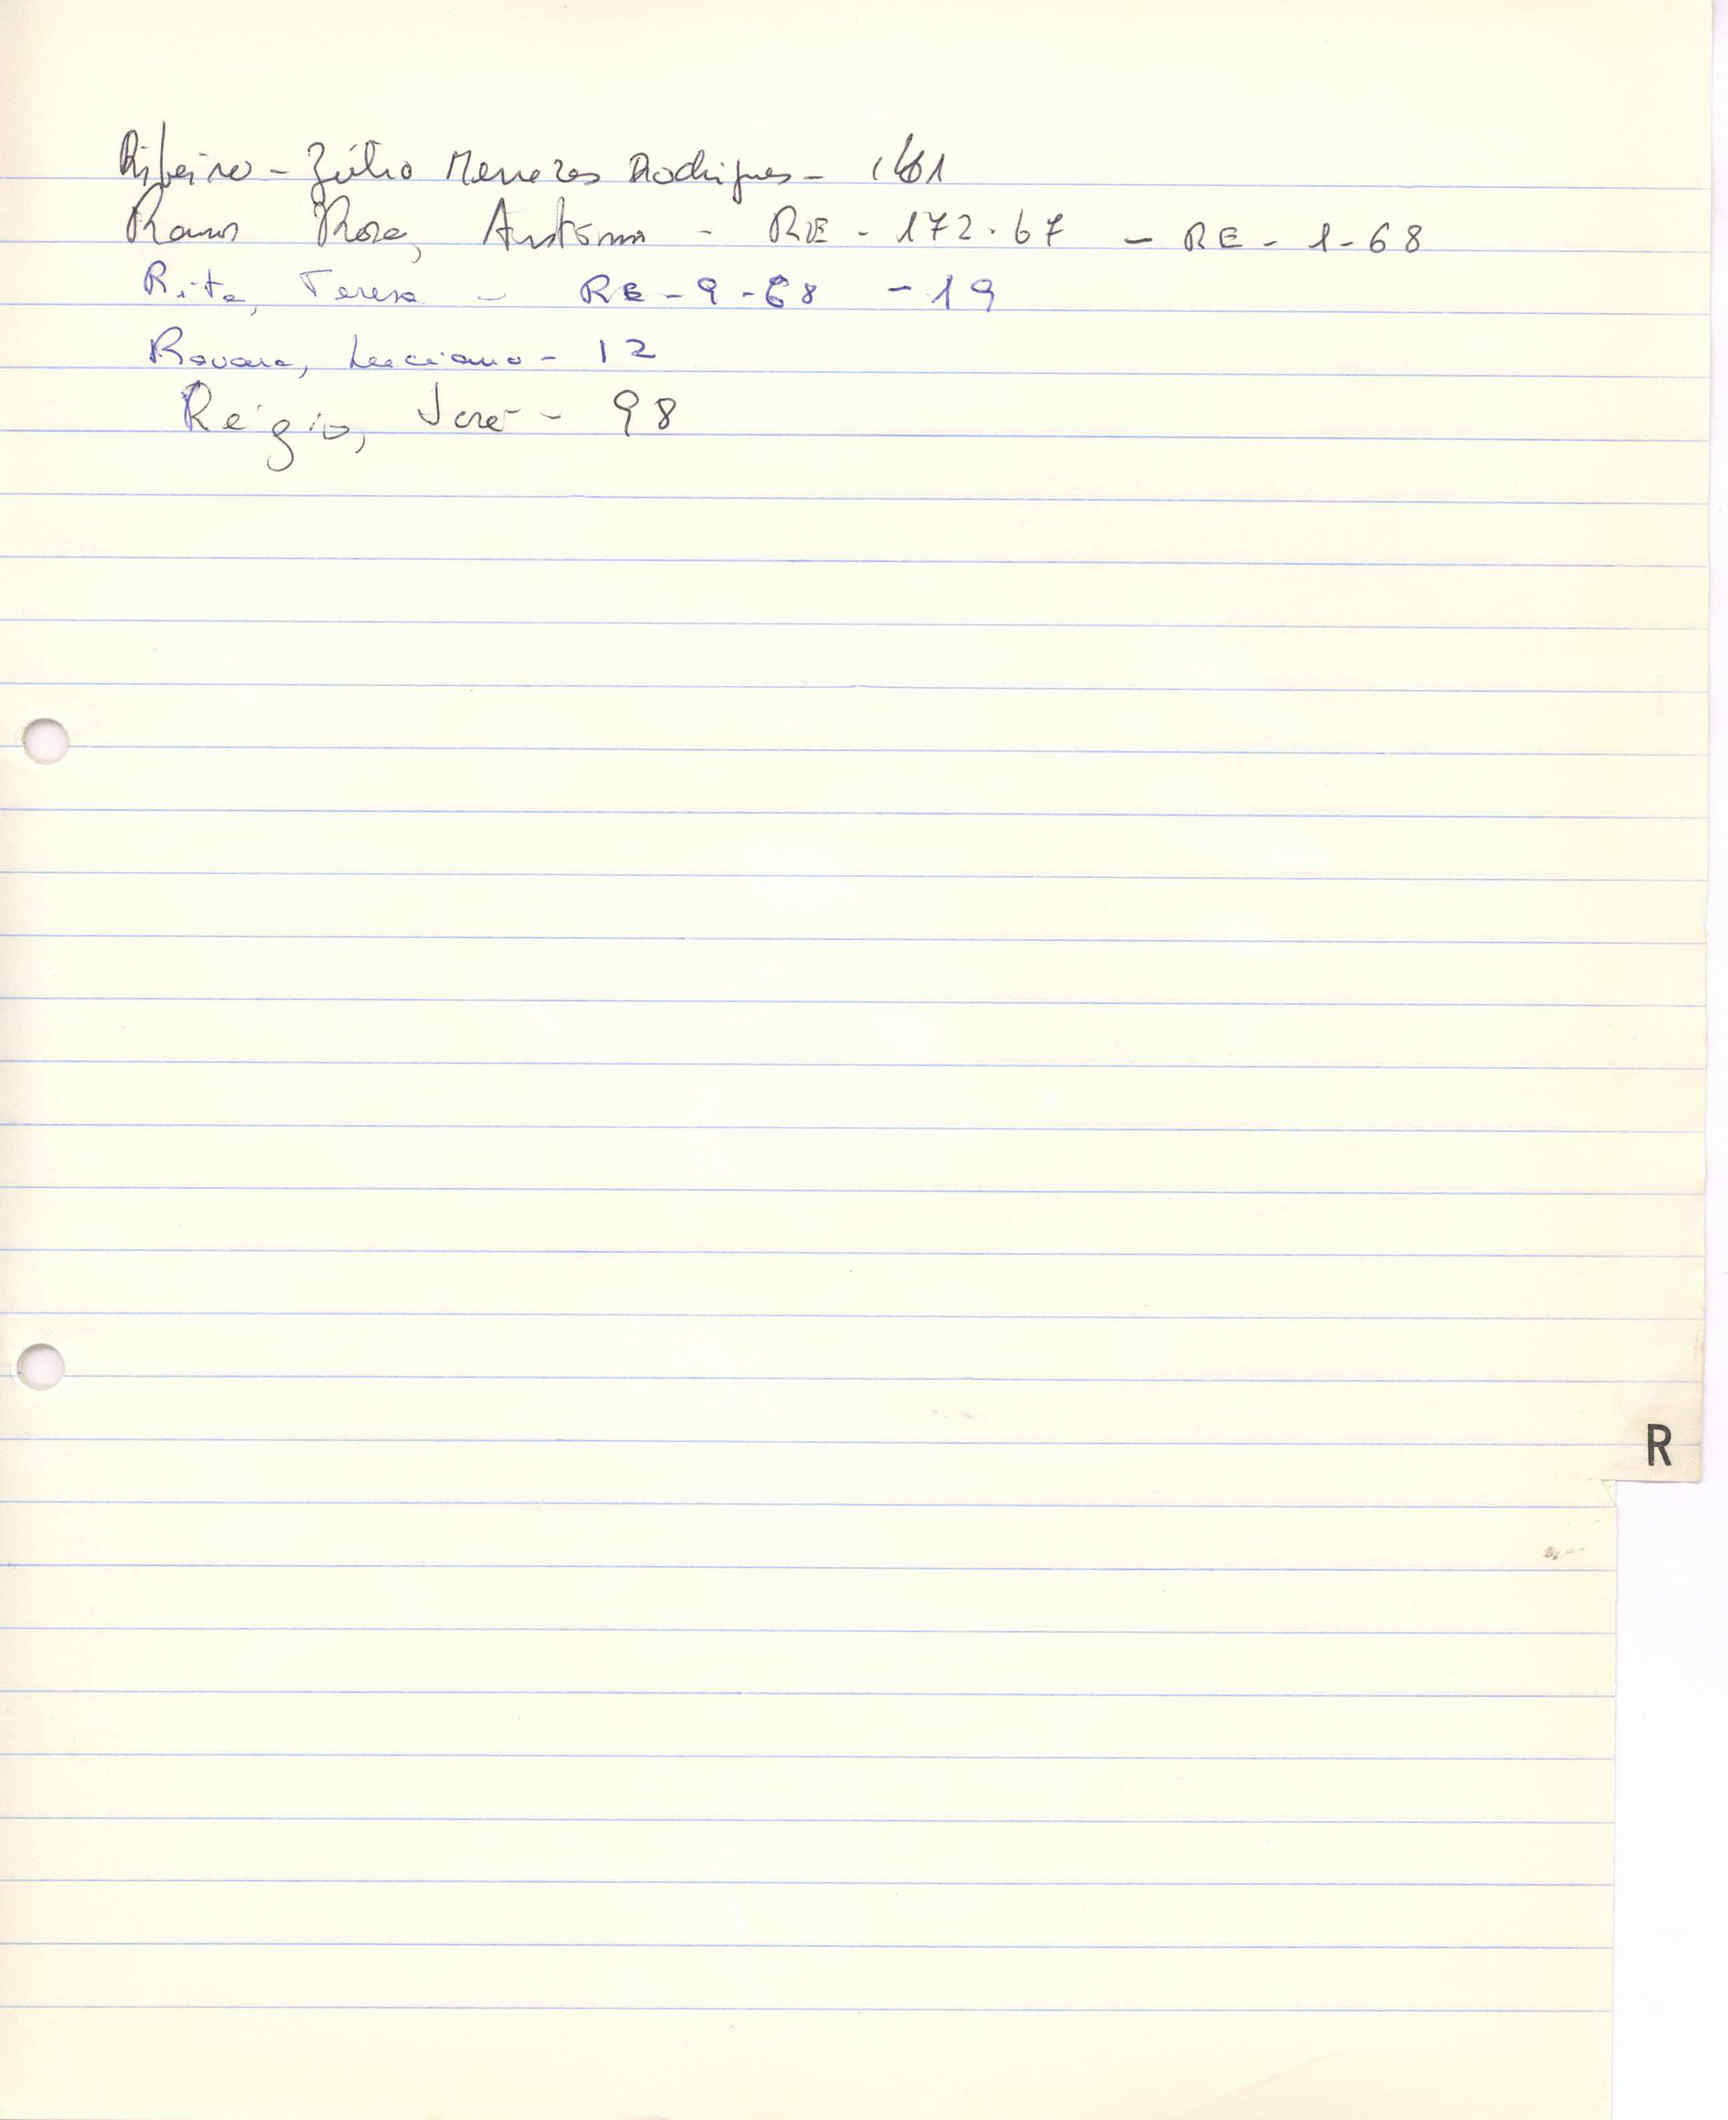 Ribeiro - Júlio Menezes Rodrigues -
Ramos Rosa, António - RE - 172.67 - RE - 1-68
Rita, Teresa - RE - 9 - 68 - 19
Rovara, Luciano - 12
Régio, José - 98
R